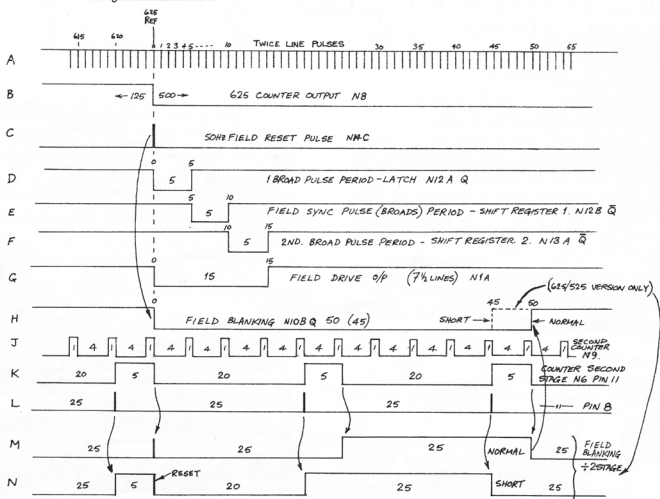 625
REF
615 620 0 1 2 3 4 5 ---- 10 TWICE LINE PULSES 30 35 40 45 50 55
A
B ← 125 500 → 625 COUNTER OUTPUT N8
C 50HZ FIELD RESET PULSE N14C
0 5
D 5 1 BROAD PULSE PERIOD - LATCH N12 A Q
5 10
E 5 FIELD SYNC PULSE (BROADS) PERIOD - SHIFT REGISTER 1. N12B Q̄
10 15
F 5 2ND. BROAD PULSE PERIOD - SHIFT REGISTER 2. N13 A Q̄
0 15
G 15 FIELD DRIVE O/P (7½ LINES) N1A
(625/525 VERSION ONLY)
0 45 50
H FIELD BLANKING N10B Q 50 (45) SHORT → ← NORMAL
J 1 4 1 4 1 4 1 4 1 4 1 4 1 4 1 4 1 4 1 4 1 4 1 4 1 4 1 SECOND COUNTER N9.
K 20 5 20 5 20 5 COUNTER SECOND STAGE N6 PIN 11
L 25 25 25 —"— PIN 8
M 25 25 25 NORMAL 25 FIELD BLANKING
÷2 STAGE
RESET
N 25 5 20 25 SHORT 25